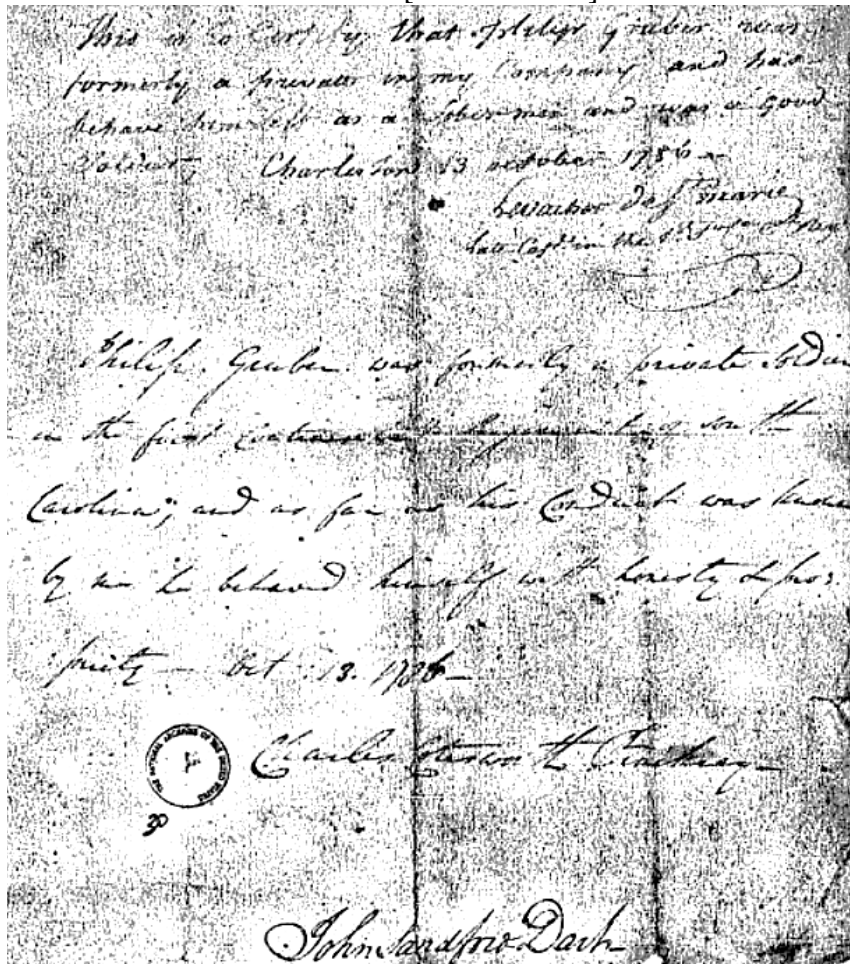 This is to Certify that Philip Gruber was
formerly a private in my Company and has
behave himself as a Sober man and was a Good
Soldier, Charleston 13 october 1786
Levacher De St Marie
late Capt in the
Philip Gruber was formerly a private Soldier
in the first Continental Regiment of South
Carolina; and as far as his Conduct was known
by me he behaved himself with honesty & pro:
priety – Oct 13. 1786 –
Charles Cotesworth Pinckney
THE NATIONAL ARCHIVES OF THE UNITED STATES
John Sandford Dart